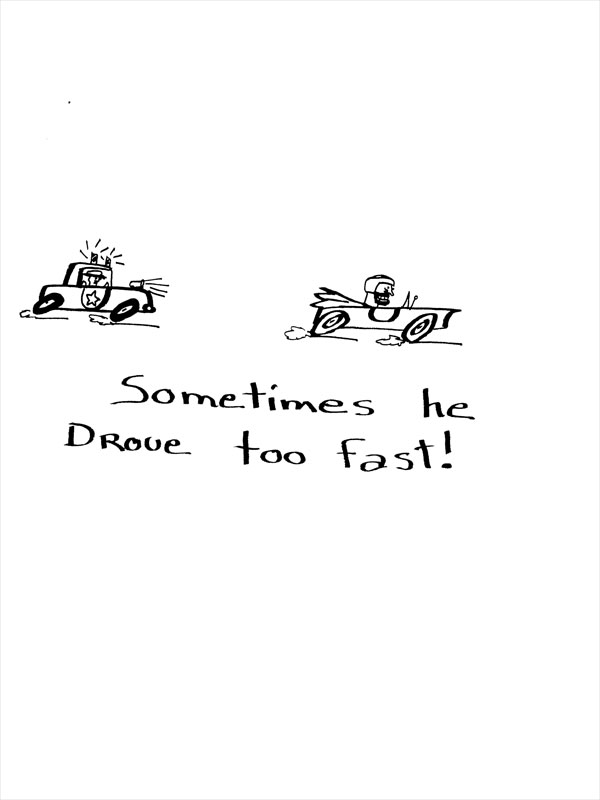 Sometimes he
Drove too fast!